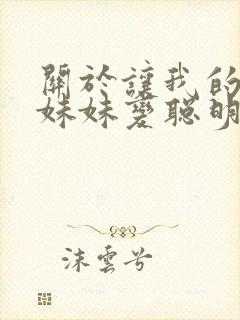 關於讓我的
妹妹變聰明
沫雲兮